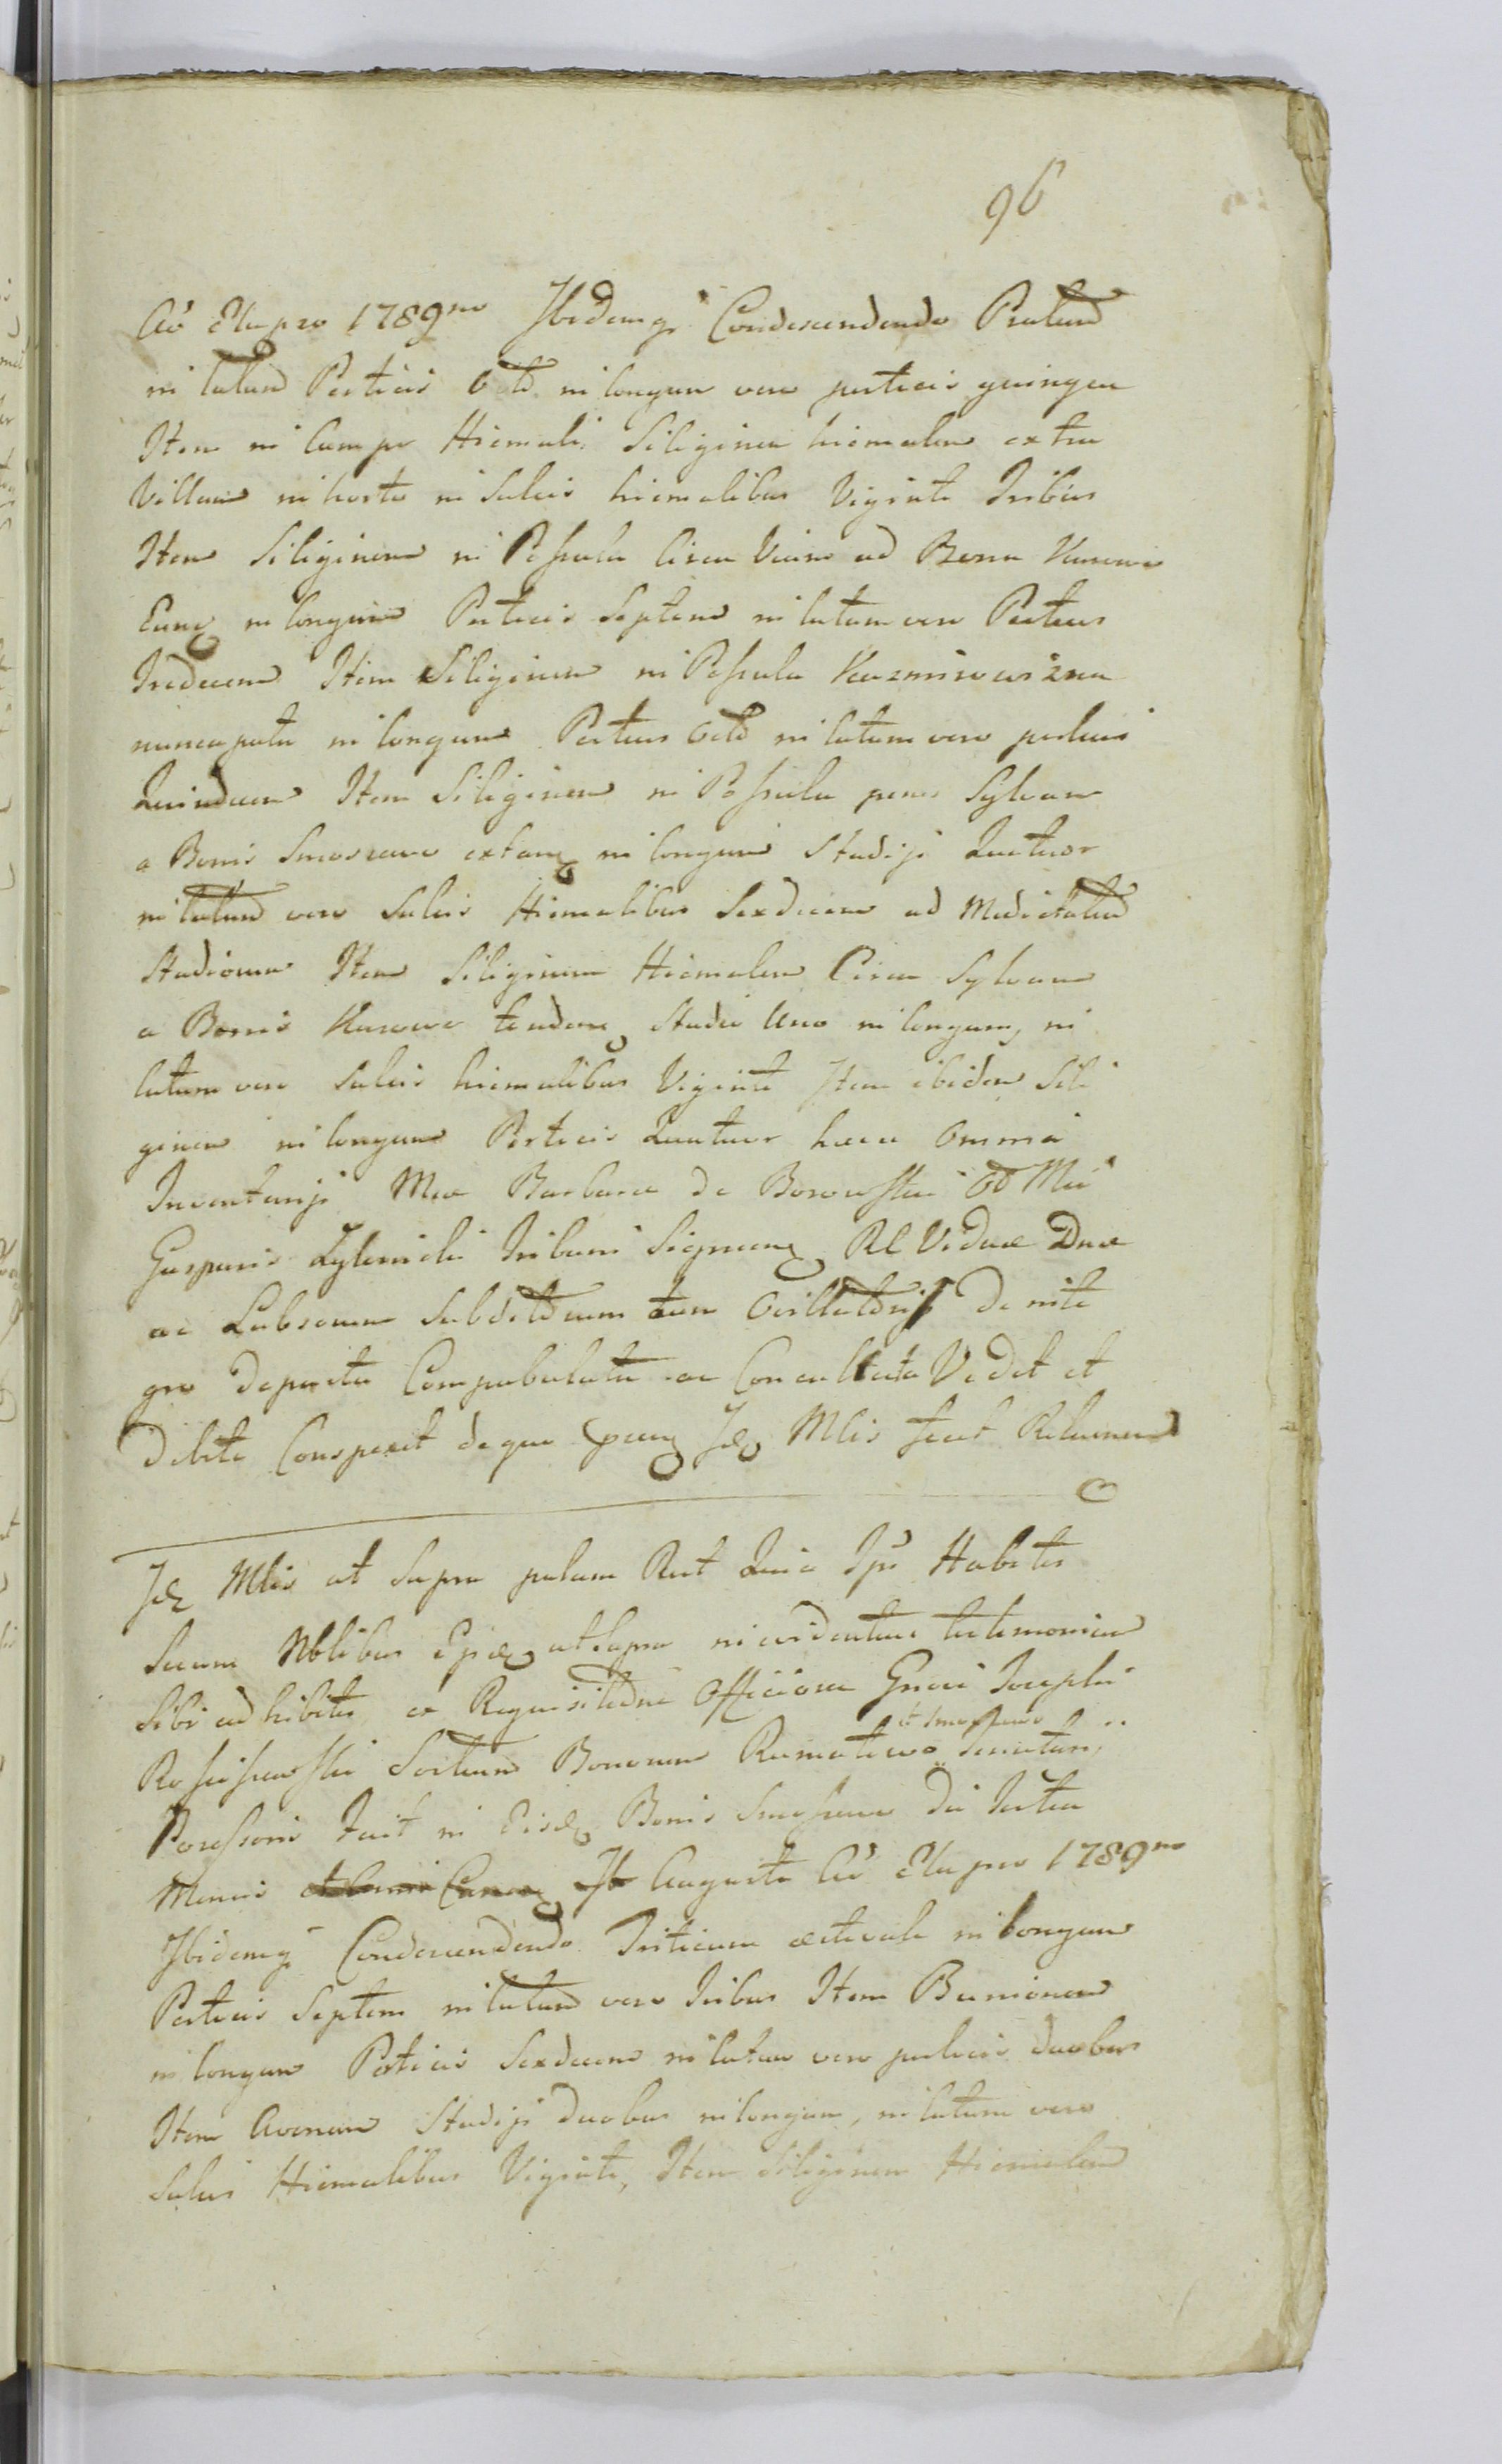 96
Aõ Elapso 1789no Ibidemq; Condescendendo Pratum
in latum Perticis Octo in longum vero perticis quinque
Item in Campo Hiemali Siliginem hiemalem extra
Villam in horto in Sulcis hiemalibus Viginti Tribus
Item Siliginem in Possula Circa Viam ad Bona Kurowo
Eunq in longum Perticis Septem in latum vero Perticis
Tredecem Item Siliginem in Possula Kuzmirowizna
nuncupata in longum Perticis Octo in latum vero perticis
Quindecem Item Siliginem in Possula penes Sylvam
a Bonis Smoszewo extanq in longum Stadiji Quatuor
in latum vero Sulcis Hiemalibus Sexdecem ad Medietatem
Stadiorum Item Siliginem Hiemalem Circa Sylvam
a Bonis Kurowo tendenq Stadio Uno in longum, in
latum vero Sulcis hiemalibus Viginti Item ibidem Sili
ginem in longum Perticis Quatuor haec Omnia
Inventarij Mae Barbarae de Borowskie Od Mci
Gasparis Zylinicki Tribuni Signienq Rl Viduae Dnae
ac Labsorum Subditorum tum Oeillatorij de inte
gro depacta Compabulata ac Conculcata Vidit et
debite Conspexit de quo Idq Mlis fecit Relationem
Idq Mlis ut Supra palam Rect Quia Ips Habitis
Secum Nblibus ut Supra in evidentius testimonium
Sibi adhibitis, ex Requisitione Officiosa Gnosi Josephi
et Smoszewo
Rościszewski Sortium Bonorum Rumatowo
Possessoris Fuit in Eisdq Bonis Smoszewo Die Tertia
Mensis Augusti Aõ Elapso 1789no
Ibidemq; Condescendendo Triticum aestivale in longum
Perticis Septem in latum vero Tribus Item
in longum Perticis Sexdecem in latum vero perticis duobus
Item Avenam Stadiji duobus in longum, in latum vero
Sulcis Hiemalibus Viginti, Item Siliginem Hiemalem